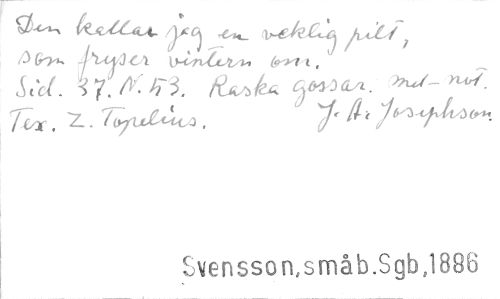 Den kallar jag en veklig pilt,
som fryser vintern om.
Sid. 37. N. 53. Raska gossar. mel-not.
Tex. Z. Topelius. J. A. Josephson.
Svensson,småb.Sgb,1886